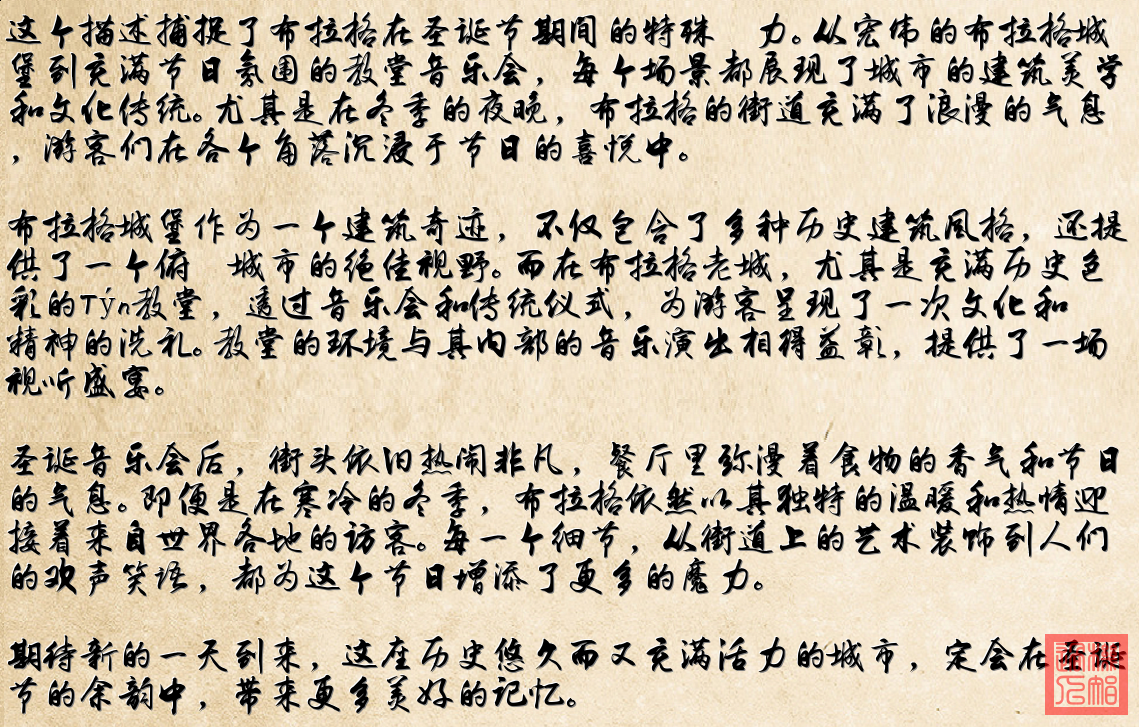 这个描述捕捉了布拉格在圣诞节期间的特殊 力。从宏伟的布拉格城
堡到充满节日氛围的教堂音乐会，每个场景都展现了城市的建筑美学
和文化传统。尤其是在冬季的夜晚，布拉格的街道充满了浪漫的气息
，游客们在各个角落沉浸于节日的喜悦中。
布拉格城堡作为一个建筑奇迹，不仅包含了多种历史建筑风格，还提
供了一个俯 城市的绝佳视野。而在布拉格老城，尤其是充满历史色
彩的Týn教堂，透过音乐会和传统仪式，为游客呈现了一次文化和
精神的洗礼。教堂的环境与其内部的音乐演出相得益彰，提供了一场
视听盛宴。
圣诞音乐会后，街头依旧热闹非凡，餐厅里弥漫着食物的香气和节日
的气息。即便是在寒冷的冬季，布拉格依然以其独特的温暖和热情迎
接着来自世界各地的访客。每一个细节，从街道上的艺术装饰到人们
的欢声笑语，都为这个节日增添了更多的魔力。
期待新的一天到来，这座历史悠久而又充满活力的城市，定会在圣诞
节的余韵中，带来更多美好的记忆。